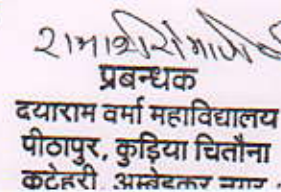 प्रबन्धक
दयाराम वर्मा महाविद्यालय
पीठापुर, कुड़िया चितौना
कटेहरी, अम्बेडकर नगर